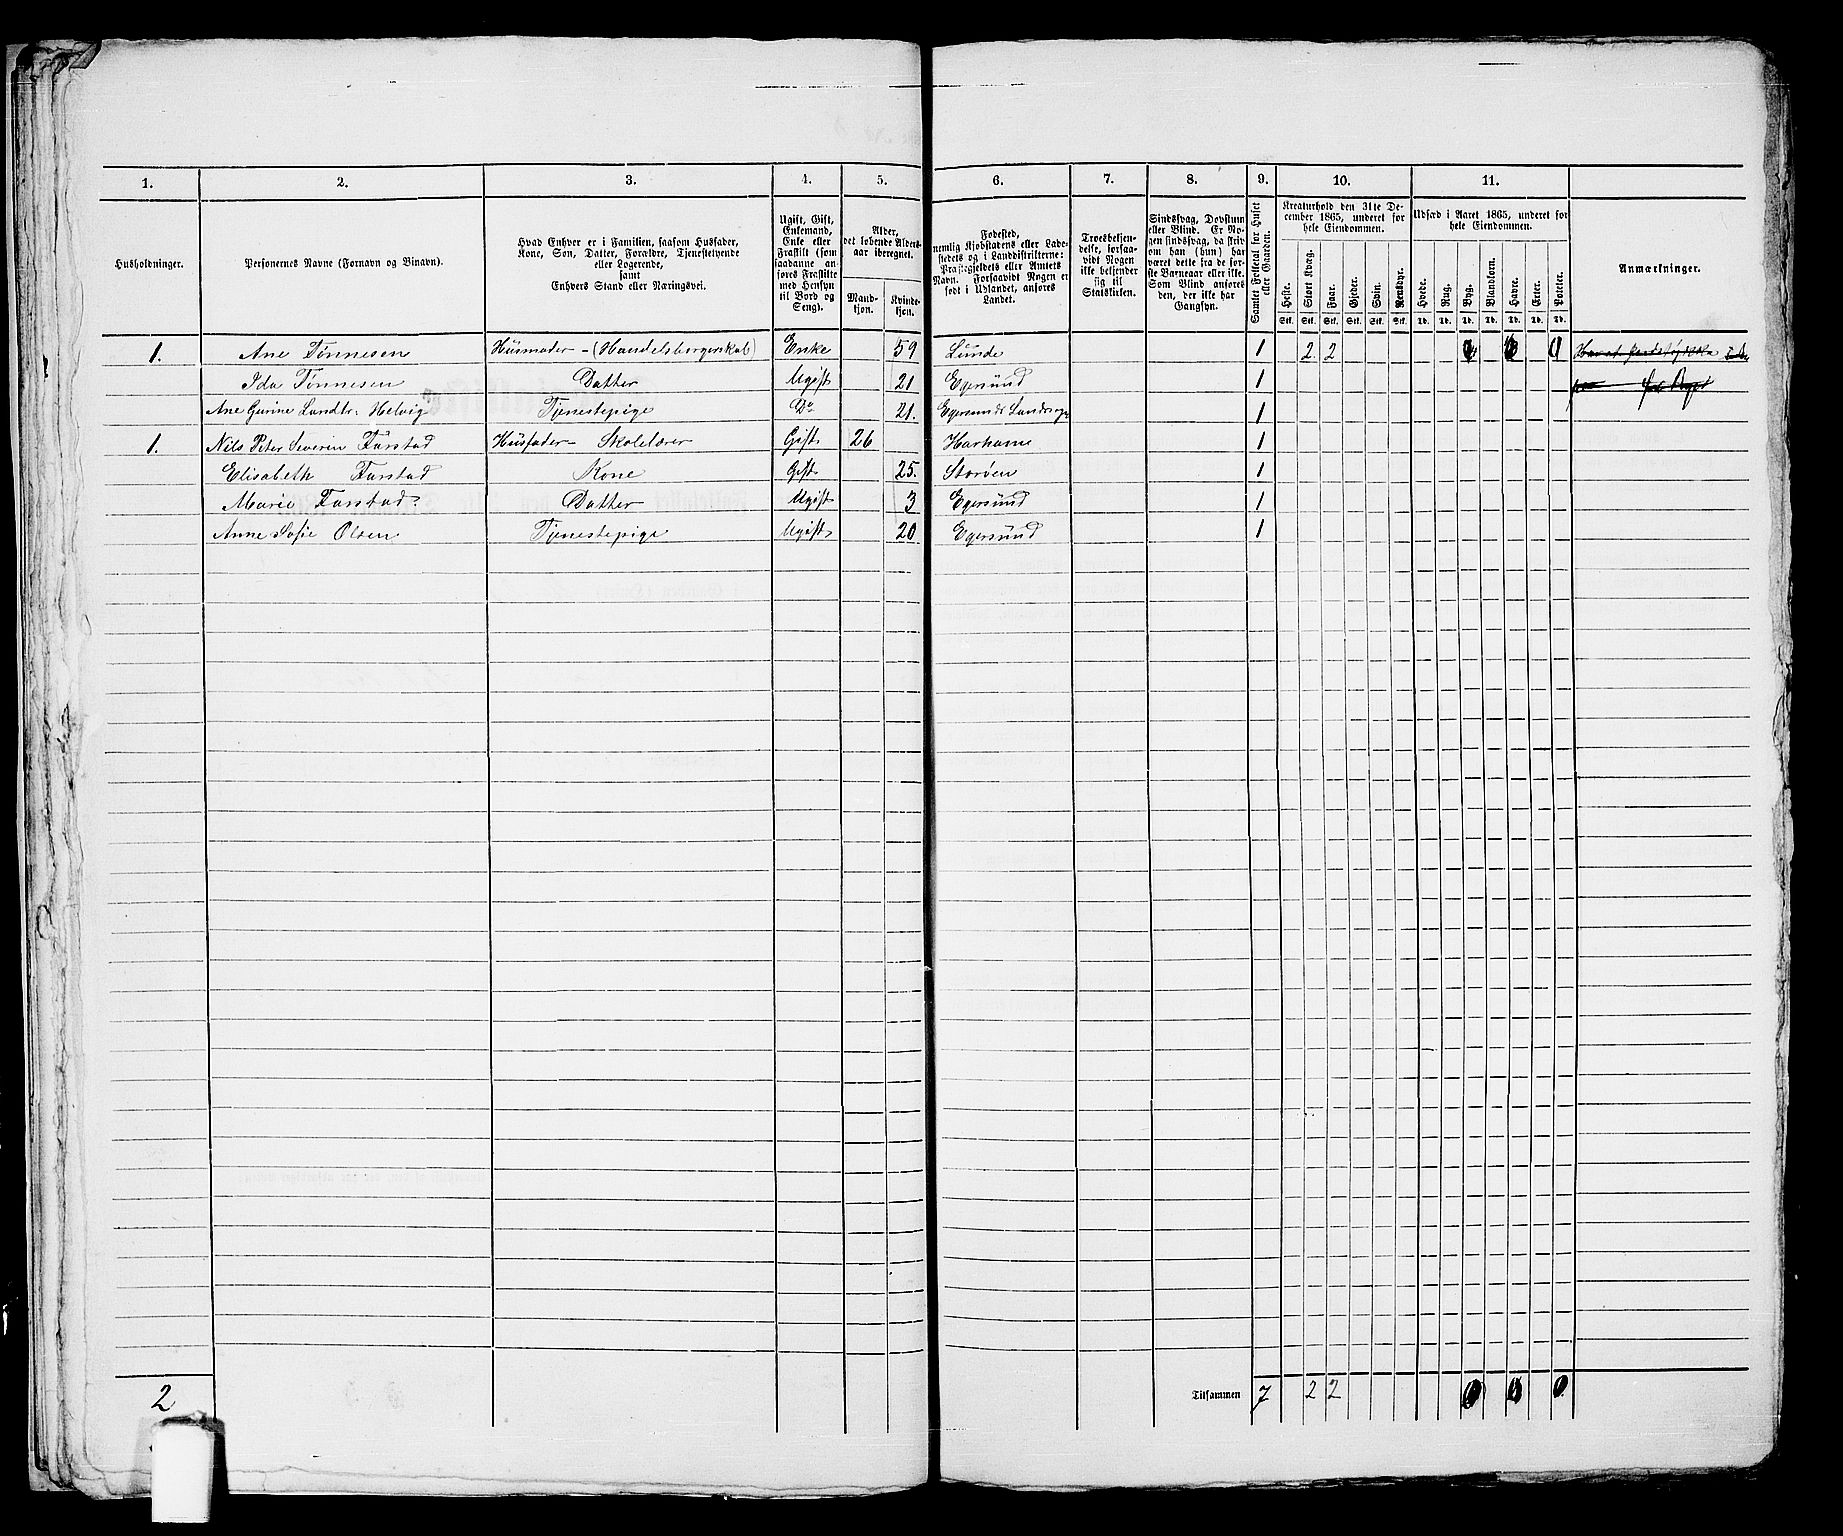 1. 2. 3. 4. 5. 6. 7. 8. 9. 10. 11.
Husholdninger.
Personernes Navne (Fornavn og Binavn).
Hvad Enhver er i Familien, saasom Husfader,
Kone, Søn, Datter, Forældre, Tjenestetyende
eller Logerende,
samt
Enhvers Stand eller Næringsvei.
Ugift, Gift,
Enkemand,
Enke eller
Fraskilt (som
saadanne an-
føres Fraskilte
med Hensyn
til Bord og
Seng).
Alder,
det løbende Alders-
aar iberegnet.
Mand-
kjøn.
Kvinde-
kjøn.
Fødested,
nemlig Kjøbstadens eller Lade-
stedets og i Landdistrikterne:
Præstegjeldets eller Amtets
Navn. Forsaavidt Nogen er
født i Udlandet, anføres
Landet.
Troesbekjen-
delse, forsaa-
vidt Nogen
ikke bekjender
sig til
Statskirken.
Sindssvag, Døvstum
eller Blind. Er No-
gen sindssvag, da skriv
om han (hun) har
været dette fra de før-
ste Barneaar eller ikke.
Som Blind anføres
den, der ikke har
Gangsyn.
Samlet Folketal for Huset
eller Gaarden.
Kreaturhold den 31te De-
cember 1865, underet for
hele Eiendommen.
Heste. Stort Kvæg. Faar. Gjeder. Svin. Rensdyr.
Stk. Stk. Stk. Stk. Stk. Stk.
Udsæd i Aaret 1865, underet for
hele Eiendommen.
Hvede. Rug. Byg. Blandkorn. Havre. Erter. Poteter.
Td. Td. Td. Td. Td. Td. Td.
Anmærkninger.
1. Ane Tønnesen Husmoder - (Handelsborgerskab) Enke 59 Lunde 1 2 2
Ida Tønnesen Datter Ugift 21 Egersund 1
Ane Gurine Lundtr. Helvig Tjenestepige Do 21. Egersunds Landsogn 1
1. Nils Peter Severin Farstad Husfader - Skolelærer Gift 26 Harhams 1
Elisabeth Farstad Kone Gift 25. Storøen 1
Marie Farstad. Datter Ugift 3 Egersund 1
Anne Sofie Olsen Tjenestepige Ugift 20 Egersund 1
2 Tilsammen 7 2 2